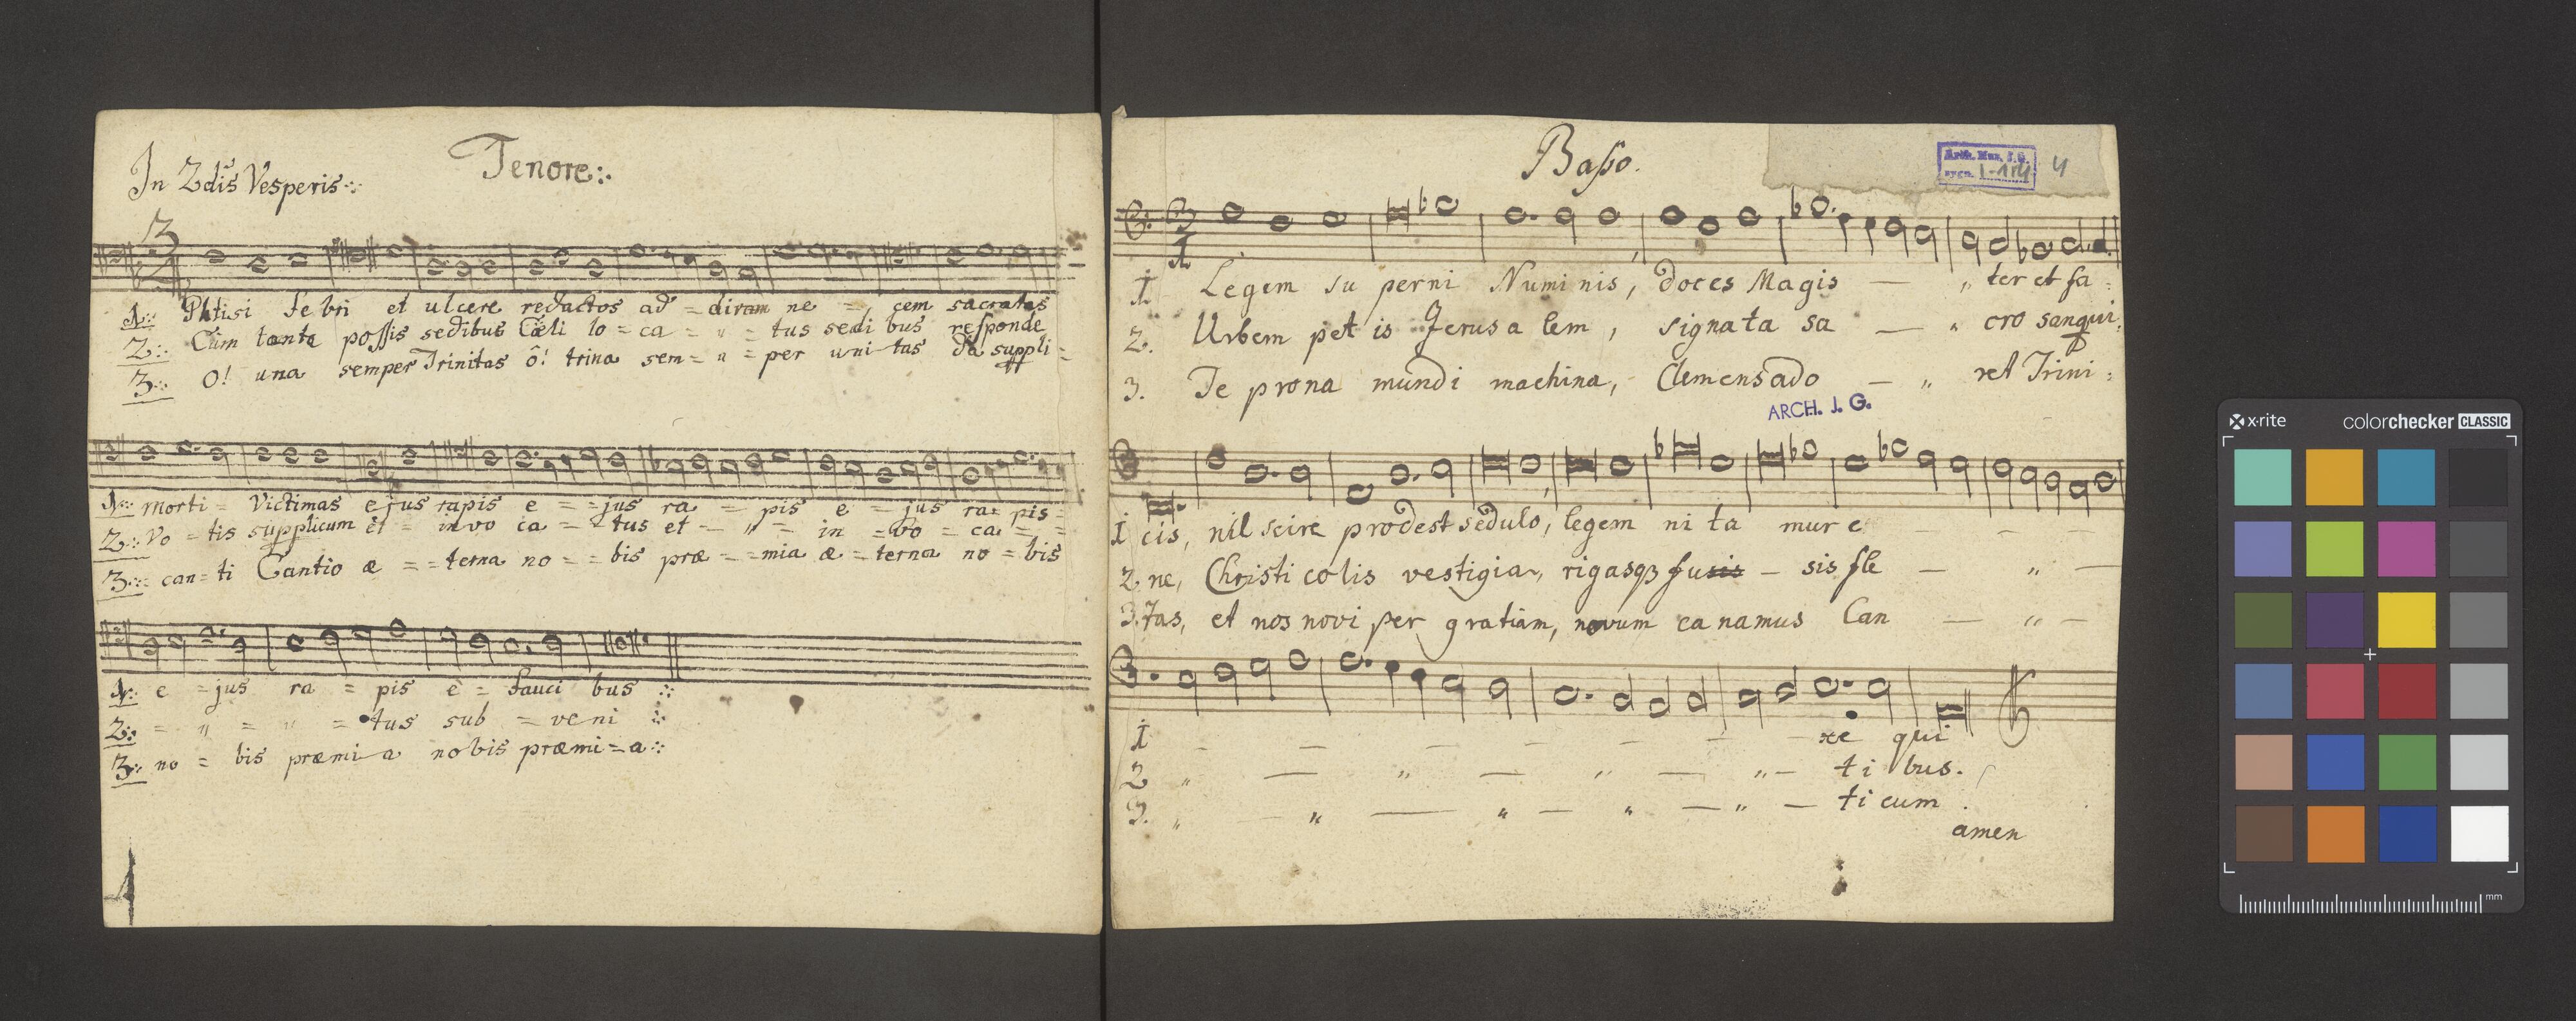 In 2dis Vesperis
Tenore
3
1. Phtisi febri et ulcere redactos ad = diram ne = cem sacratas
2. Cum tanta possis sedibus Cœli lo = ca = " = tus sedi bus responde
3. O! una semper Trinitas ô! trina sem = " = per uni tas da suppli =
1. morti = Victimas ejus rapis e = = jus ra = pis = e = jus ra = pis =
2. Vo = tis supplicum et = invo ca = = tus et = " = in = vo = ca = =
3. can = ti Cantio æ = = terna no = = bis præ = = mia æ = terna no = bis
1. e = jus ra = pis e = fauci bus
2. = " = " = tus sub = veni
3. no = bis præmi a nobis præmi = a
Basso.
Arch. Muz. J. G.
sygn. I-114
4
3
1
1. Legem su perni Numinis, doces Magis — " ter et fa =
2. Urbem pet is Jerusa lem, signata sa — " cro sangui,
3. Te prona mundi machina, Clemens ado — " ret Trini =
ARCH. J. G.
1 cis, nil scire prodest sedulo, legem ni ta mur e — — —
2 ne, Christi colis vestigia, rigasqз fusis — sis fle — " —
3. tas, et nos novi per gratiam, novum ca namus Can — " —
1 — — — — — — — xe qui
2 " — " — " — " — ti bus.
3. " — " — " — " — " — ti cum.
amen
x·rite
colorchecker CLASSIC
mm